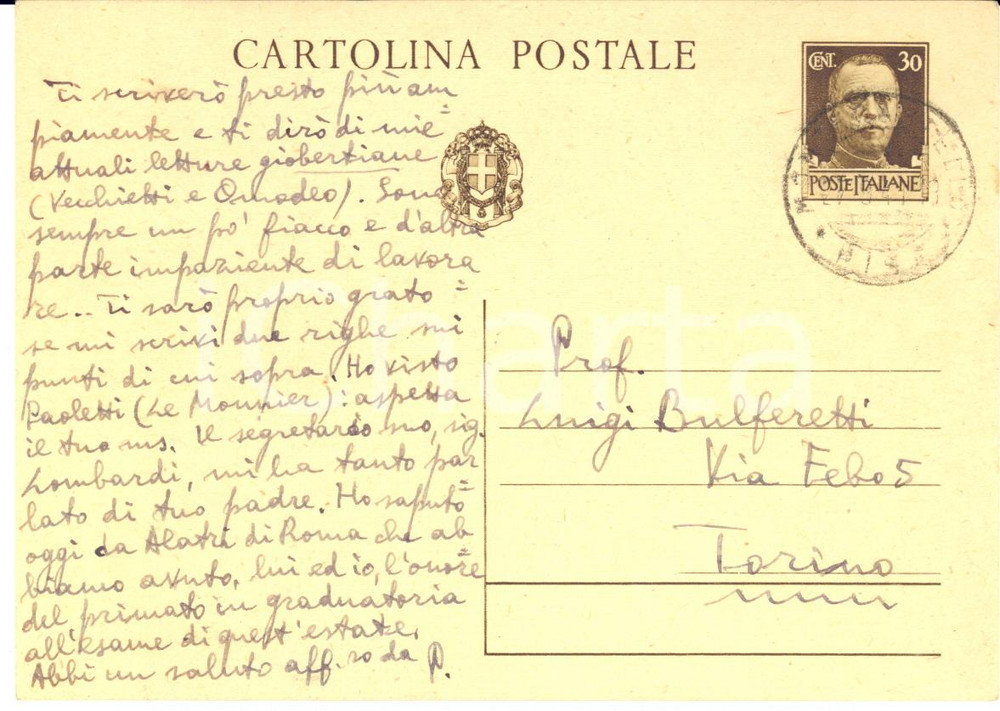 CARTOLINA POSTALE
CENT. 30
POSTE ITALIANE
PISA
Ti scriverò presto più am=
piamente e ti dirò di mie
attuali letture giobertiane
(Vecchietti e Omodeo). Sono
sempre un pò fiacco e d'altra
parte impaziente di lavora=
re... Ti sarò proprio grato
se mi scrivi due righe sui
punti di cui sopra. Ho visto
Paoletti (Le Monnier): aspetta
il tuo ms. Il segretario suo, sig.
Lombardi, mi ha tanto par=
lato di tuo padre. Ho saputo
oggi da Alatri di Roma che ab=
biamo avuto, lui ed io, l'onore
del primato in graduatoria
all'esame di quest'estate.
Abbi un saluto aff.so da P.
Prof.
Luigi Bulferetti
Via Febo 5
Torino
Charta